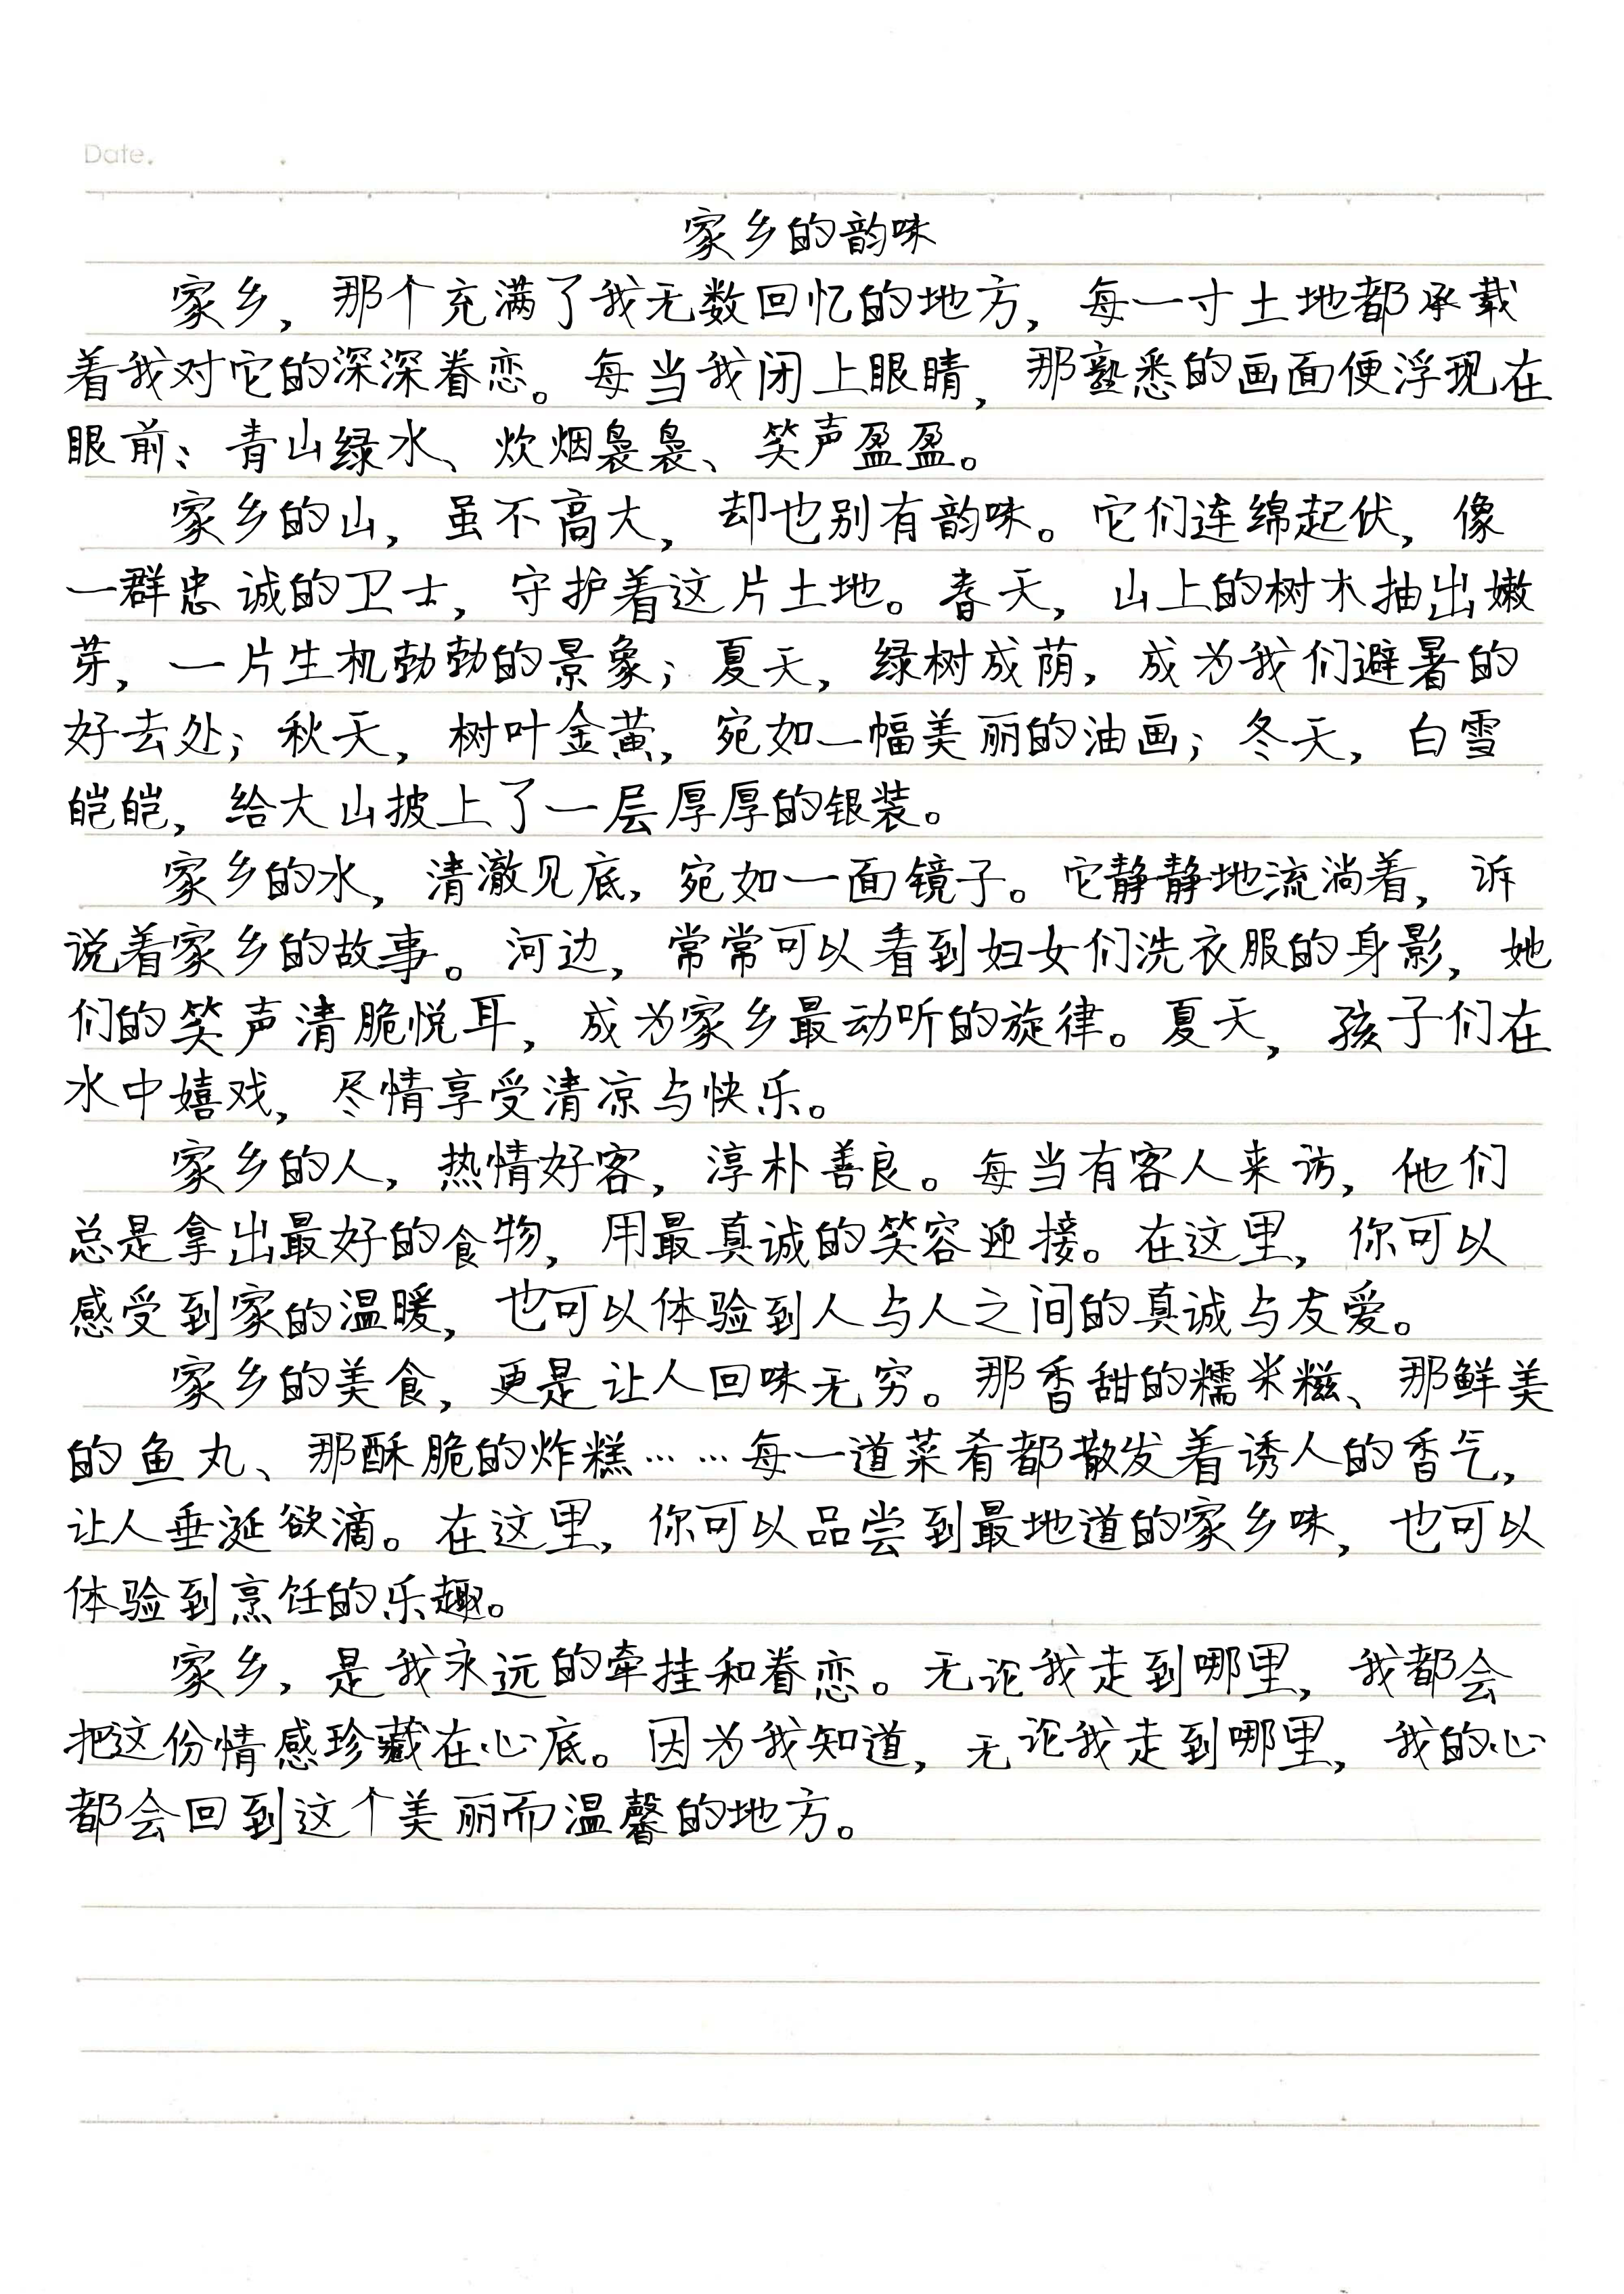 Date.
家乡的韵味
家乡，那个充满了我无数回忆的地方，每一寸土地都承载
着我对它的深深眷恋。每当我闭上眼睛，那熟悉的画面便浮现在
眼前：青山绿水、炊烟袅袅、笑声盈盈。
家乡的山，虽不高大，却也别有韵味。它们连绵起伏，像
一群忠诚的卫士，守护着这片土地。春天，山上的树木抽出嫩
芽，一片生机勃勃的景象；夏天，绿树成荫，成为我们避暑的
好去处；秋天，树叶金黄，宛如一幅美丽的油画；冬天，白雪
皑皑，给大山披上了一层厚厚的银装。
家乡的水，清澈见底，宛如一面镜子。它静静地流淌着，诉
说着家乡的故事。河边，常常可以看到妇女们洗衣服的身影，她
们的笑声清脆悦耳，成为家乡最动听的旋律。夏天，孩子们在
水中嬉戏，尽情享受清凉与快乐。
家乡的人，热情好客，淳朴善良。每当有客人来访，他们
总是拿出最好的食物，用最真诚的笑容迎接。在这里，你可以
感受到家的温暖，也可以体验到人与人之间的真诚与友爱。
家乡的美食，更是让人回味无穷。那香甜的糯米糍、那鲜美
的鱼丸、那酥脆的炸糕……每一道菜肴都散发着诱人的香气，
让人垂涎欲滴。在这里，你可以品尝到最地道的家乡味，也可以
体验到烹饪的乐趣。
家乡，是我永远的牵挂和眷恋。无论我走到哪里，我都会
把这份情感珍藏在心底。因为我知道，无论我走到哪里，我的心
都会回到这个美丽而温馨的地方。